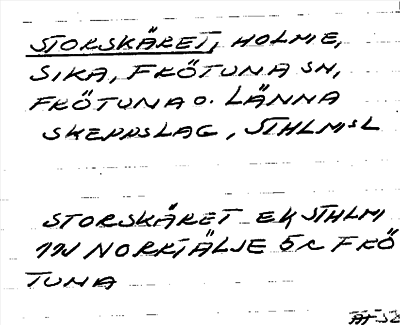 STORSKÄRET, HOLME,
SIKA, FRÖTUNA SN,
FRÖTUNA O. LÄNNA
SKEPPSLAG, STHLMSL
STORSKÄRET EK STHLM
11N NORRTÄLJE 5N FRÖ
TUNA